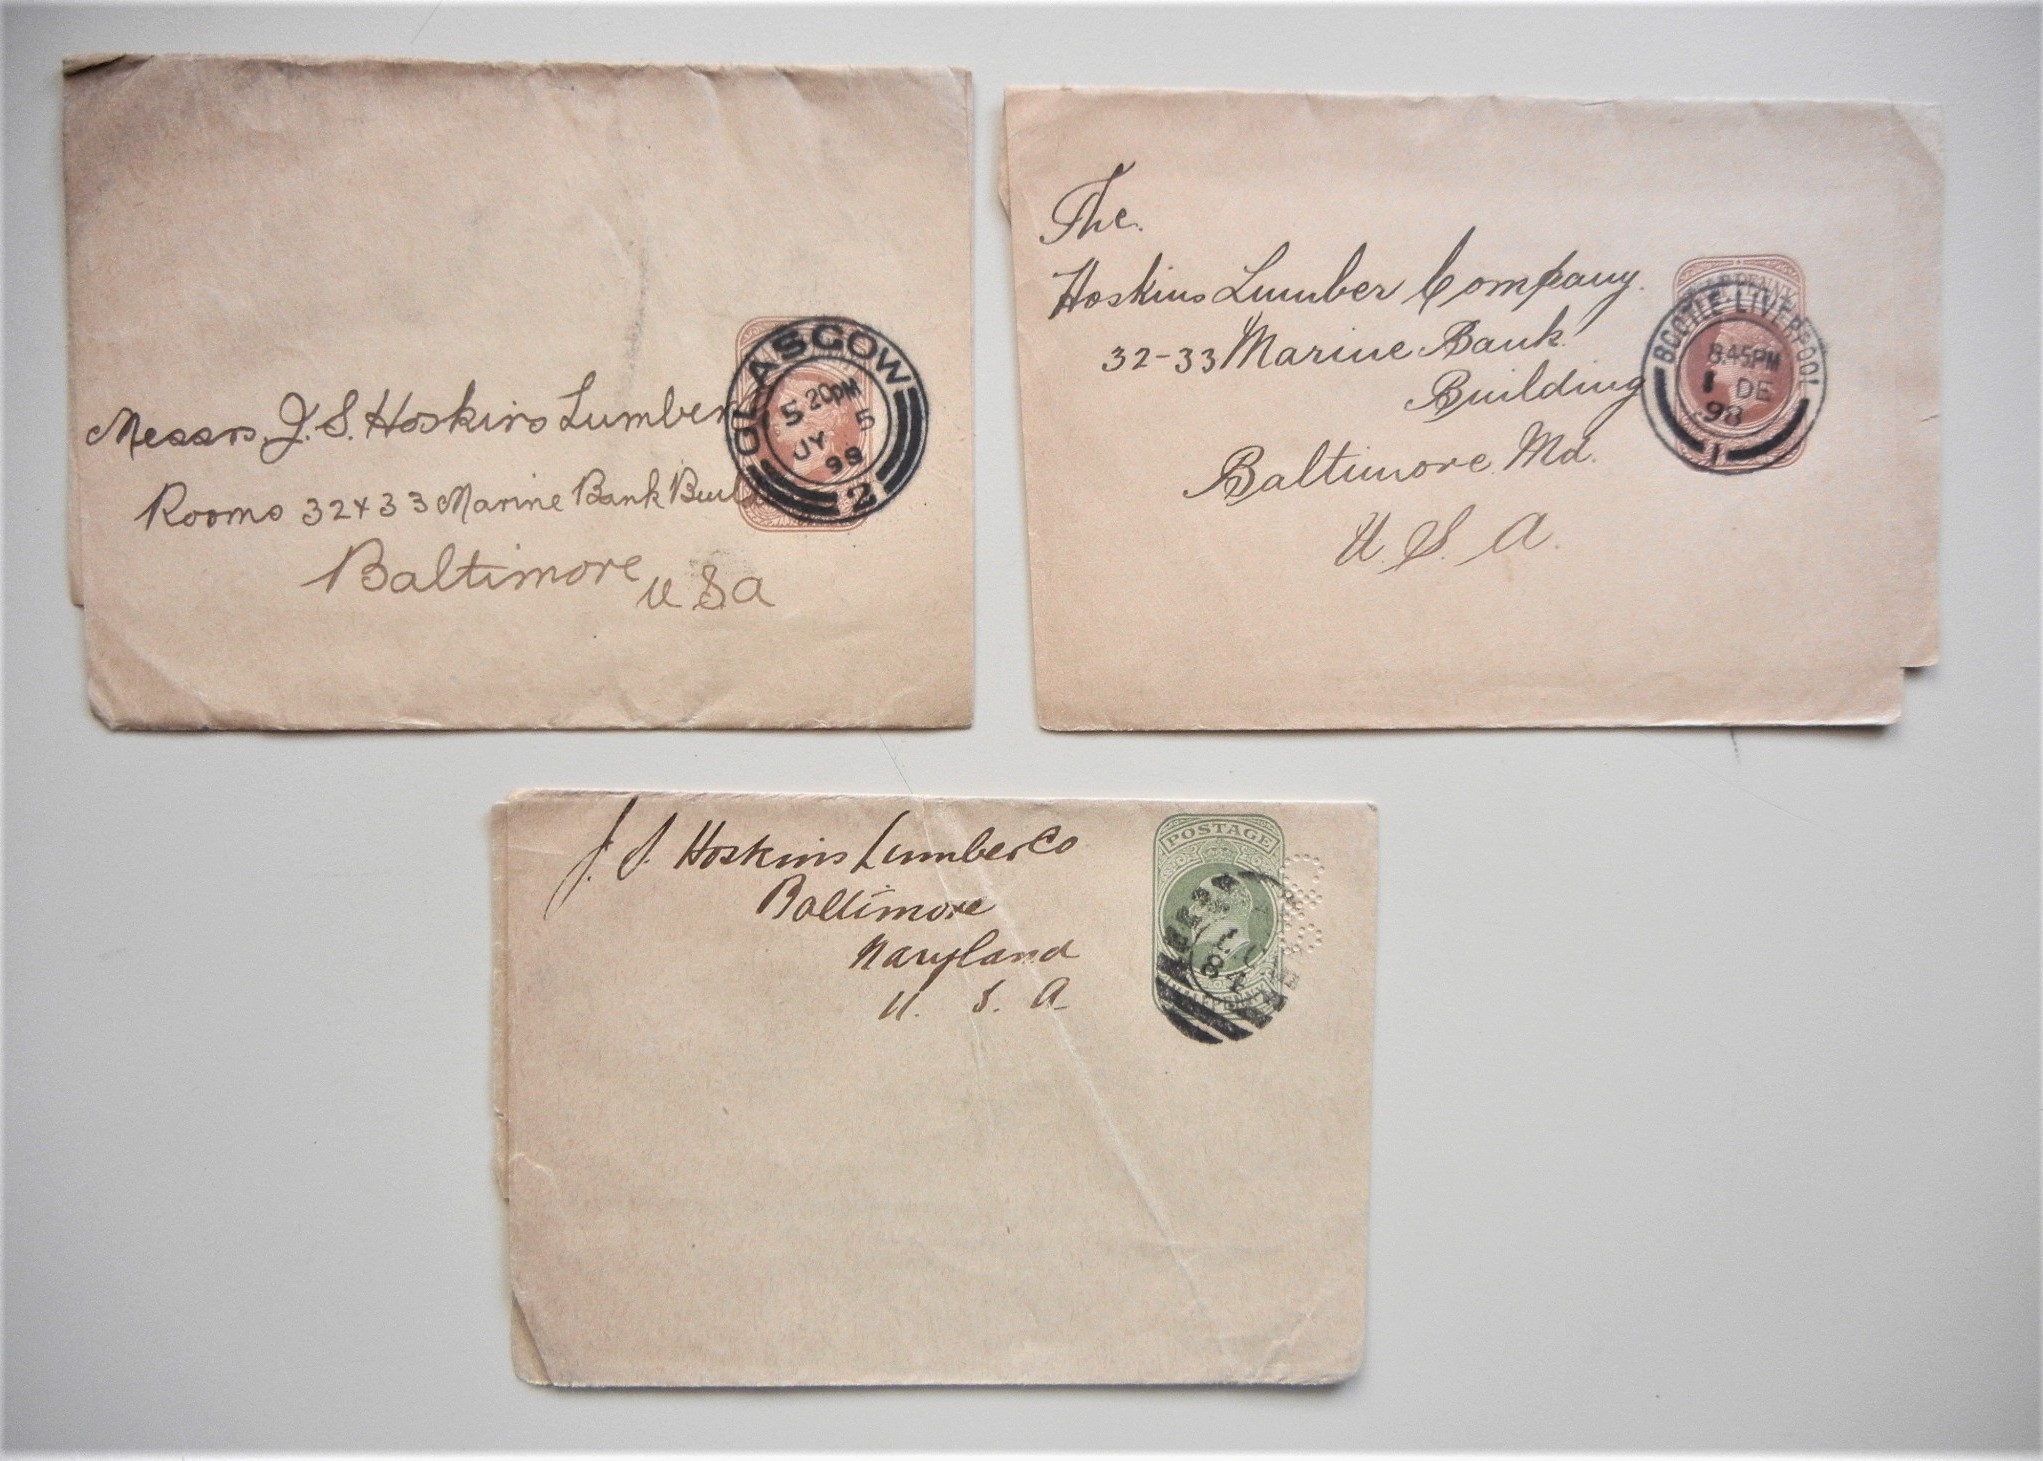 Messrs J. S. Hoskins Lumber
Rooms 32 & 33 Marine Bank Buil
Baltimore
U S a
GLASGOW
5 20PM 5
JY
98
2
The
Hoskins Lumber Company.
32-33 Marine Bank
Building
Baltimore Md.
U. S. A.
BOOTLE-LIVERPOOL
8.45PM
1 DE
98
1
J. S. Hoskins Lumber Co
Baltimore
Maryland
U. S. A
POSTAGE
HALFPENNY